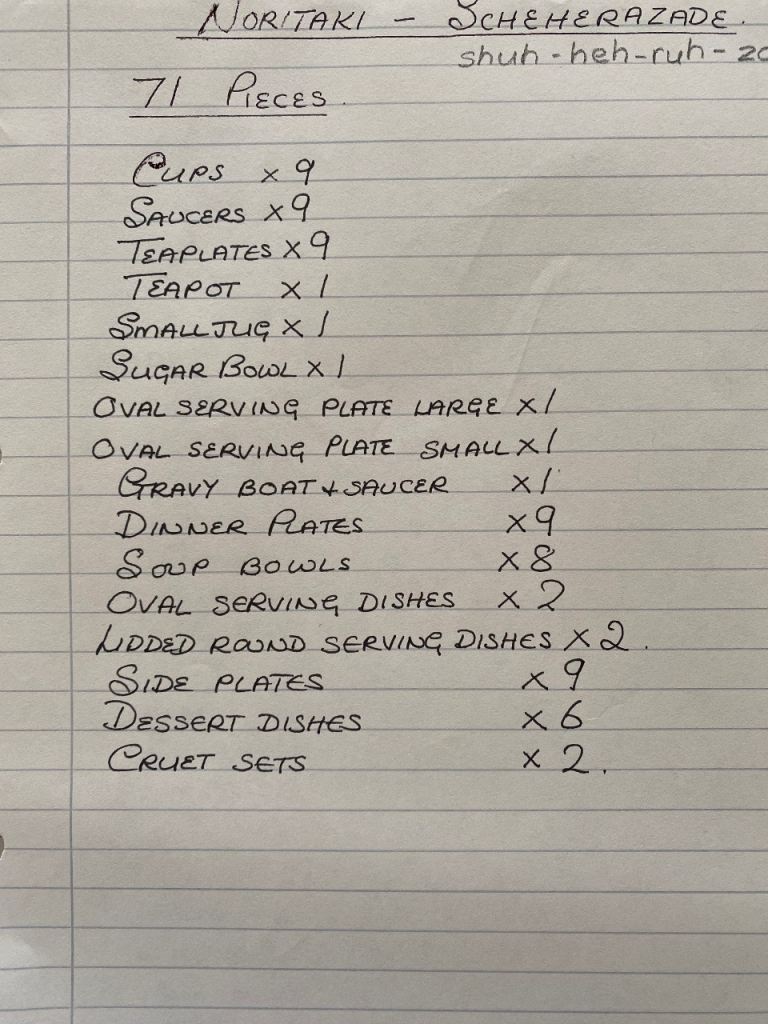 NORITAKI - SCHEHERAZADE.
shuh-heh-ruh-
71 PIECES.
CUPS x 9
SAUCERS x 9
TEAPLATES x 9
TEAPOT x 1
SMALL JUG x 1
SUGAR BOWL x 1
OVAL SERVING PLATE LARGE x 1
OVAL SERVING PLATE SMALL x 1
GRAVY BOAT + SAUCER x 1
DINNER PLATES x 9
SOUP BOWLS x 8
OVAL SERVING DISHES x 2
LIDDED ROUND SERVING DISHES x 2.
SIDE PLATES x 9
DESSERT DISHES x 6
CRUET SETS x 2.